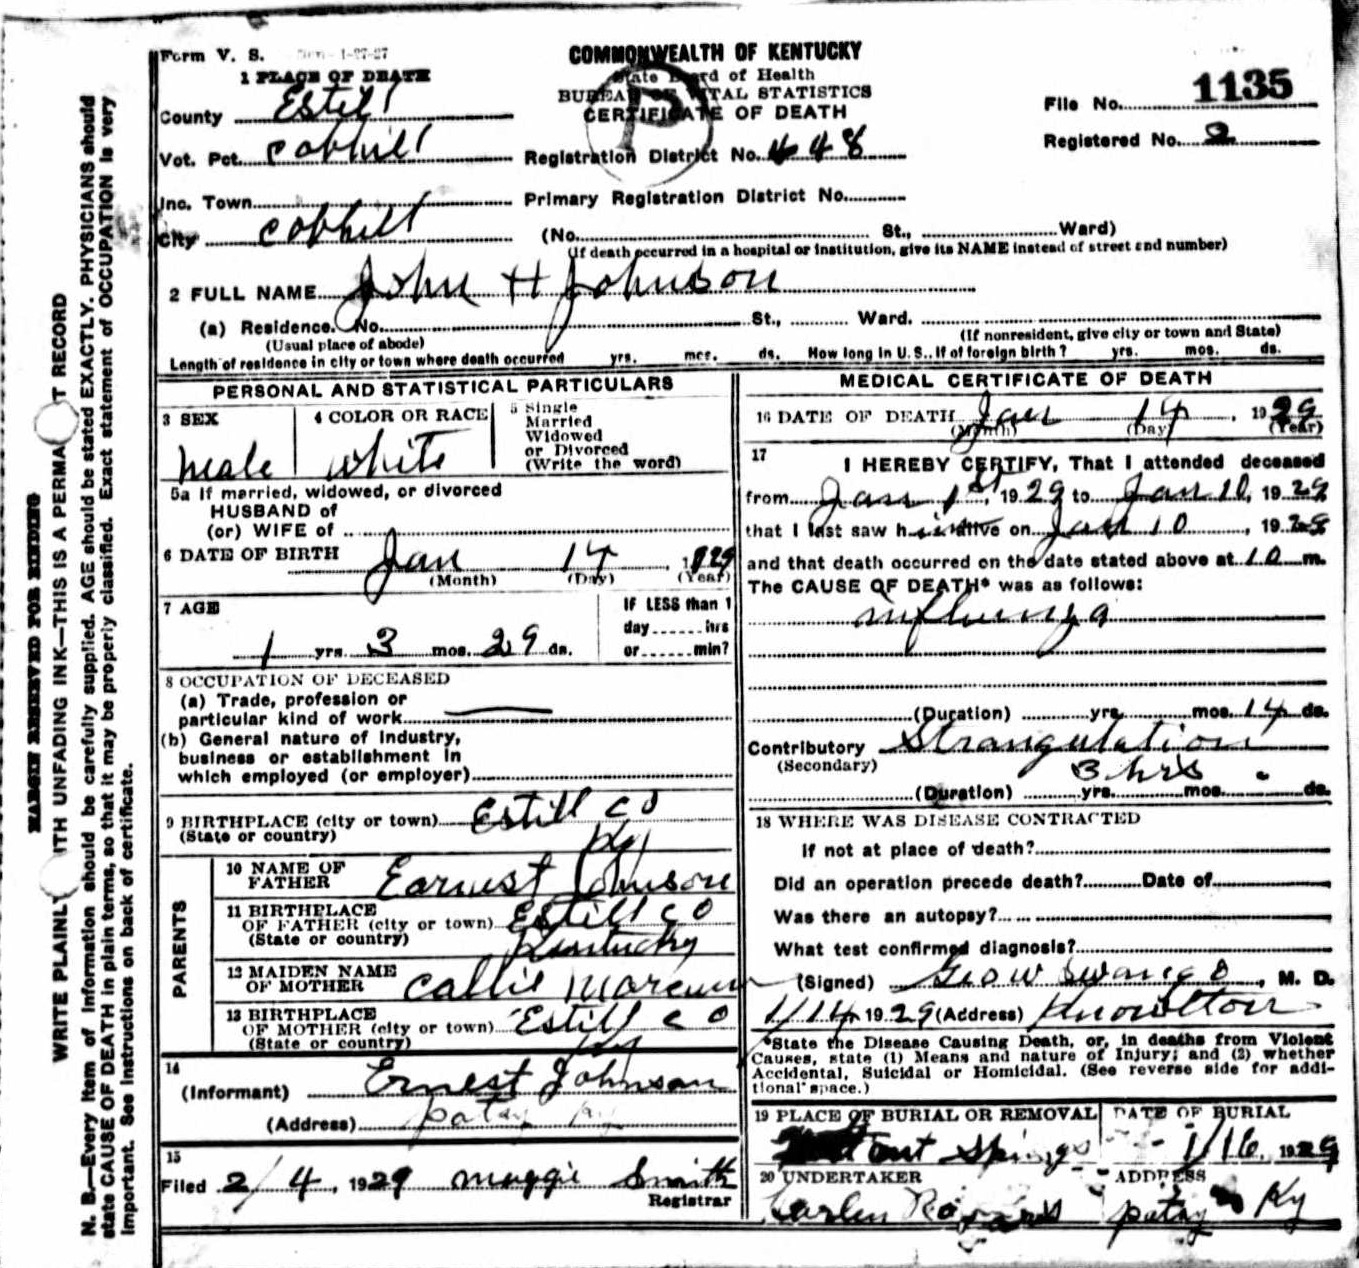 Form V. S. 1-27-27
COMMONWEALTH OF KENTUCKY
State Board of Health
BUREAU OF VITAL STATISTICS
CERTIFICATE OF DEATH
File No. 1135
Registered No. 2
1 PLACE OF DEATH
County Estill
Vot. Pct. Cobhill
Registration District No. 448
Inc. Town Primary Registration District No.
City Cobhill (No. St., Ward)
(If death occurred in a hospital or institution, give its NAME instead of street and number)
2 FULL NAME John H Johnson
(a) Residence. No. St., Ward.
(Usual place of abode) (If nonresident, give city or town and State)
Length of residence in city or town where death occurred yrs. mos. ds. How long in U. S., if of foreign birth? yrs. mos. ds.
PERSONAL AND STATISTICAL PARTICULARS
3 SEX
male
4 COLOR OR RACE
white
5 Single
Married
Widowed
or Divorced
(Write the word)
5a If married, widowed, or divorced
HUSBAND of
(or) WIFE of
6 DATE OF BIRTH Jan 14
(Month) (Day) (Year)
7 AGE
1 yrs. 3 mos. 29 ds.
IF LESS than 1
day hrs
or min?
8 OCCUPATION OF DECEASED
(a) Trade, profession or
particular kind of work
(b) General nature of Industry,
business or establishment in
which employed (or employer)
9 BIRTHPLACE (city or town) Estill Co
(State or country) Ky
PARENTS
10 NAME OF
FATHER Earnest Johnson
11 BIRTHPLACE
OF FATHER (city or town) Estill Co
(State or country) Kentucky
12 MAIDEN NAME
OF MOTHER Callie Marcum
13 BIRTHPLACE
OF MOTHER (city or town) Estill Co
(State or country) Ky
14
(Informant) Ernest Johnson
(Address) patsy Ky
15
Filed 2/4, 1929 Maggie Smith
Registrar
MEDICAL CERTIFICATE OF DEATH
16 DATE OF DEATH Jan 14, 1929
(Month) (Day) (Year)
17
I HEREBY CERTIFY, That I attended deceased
from Jan 1st, 1929 to Jan 10, 1929
that I last saw him alive on Jan 10, 1929
and that death occurred on the date stated above at 10 m.
The CAUSE OF DEATH* was as follows:
influenza
(Duration) yrs. mos. 14 ds.
Contributory Strangulation
(Secondary) 3 hrs
(Duration) yrs. mos. ds.
18 WHERE WAS DISEASE CONTRACTED
If not at place of death?
Did an operation precede death? Date of
Was there an autopsy?
What test confirmed diagnosis?
(Signed) Geo W Swango, M. D.
1/14 1929 (Address) Knowlton
*State the Disease Causing Death, or, in deaths from Violent
Causes, state (1) Means and nature of Injury; and (2) whether
Accidental, Suicidal or Homicidal. (See reverse side for addi-
tional space.)
19 PLACE OF BURIAL OR REMOVAL
Springs
DATE OF BURIAL
1/16, 1929
20 UNDERTAKER
ADDRESS
patsy Ky
MARGIN RESERVED FOR BINDING
WRITE PLAINLY WITH UNFADING INK—THIS IS A PERMANENT RECORD
N. B.—Every item of information should be carefully supplied. AGE should be stated EXACTLY. PHYSICIANS should
state CAUSE OF DEATH in plain terms, so that it may be properly classified. Exact statement of OCCUPATION is very
important. See instructions on back of certificate.